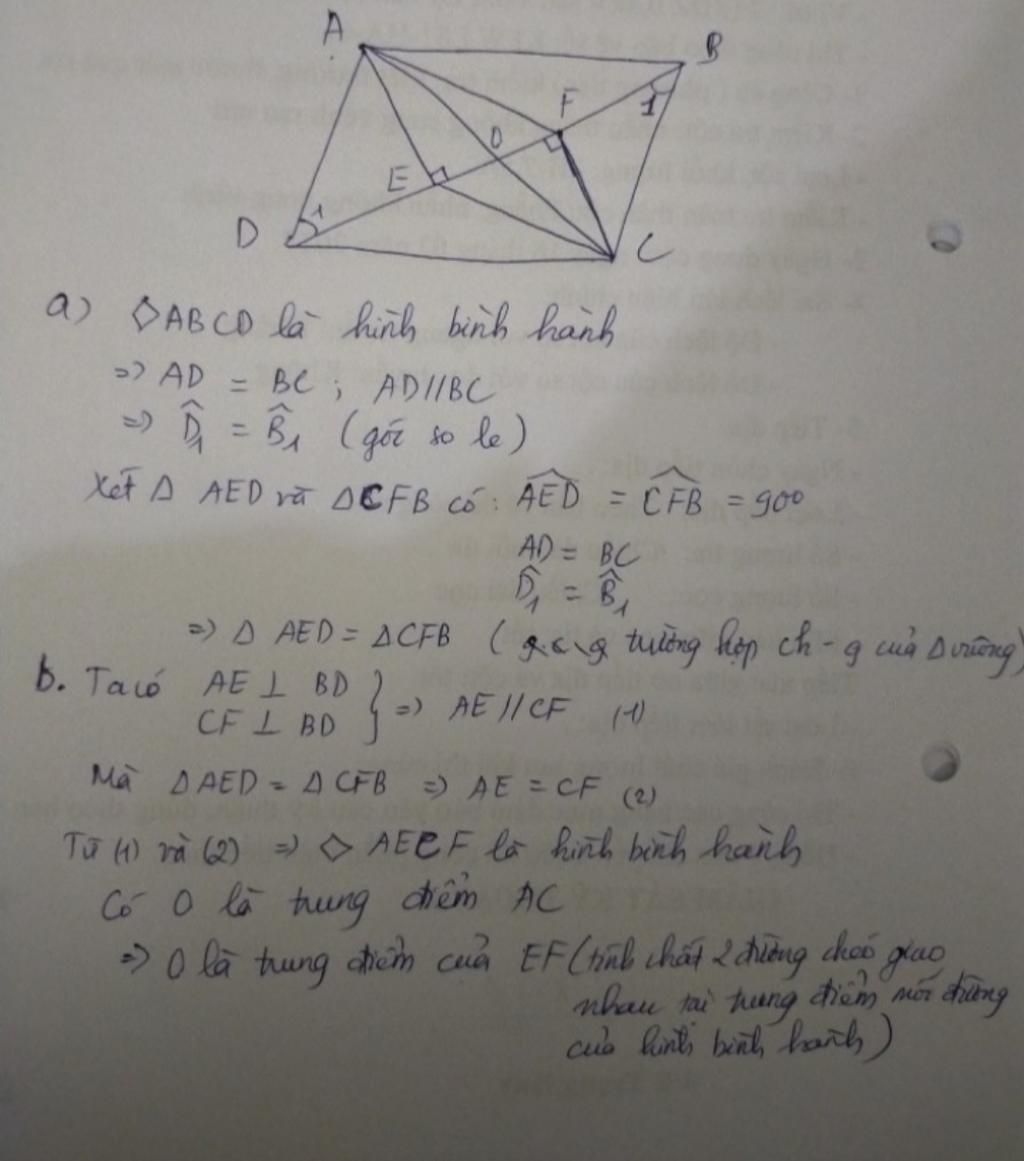 A
B
F
1
O
E
D
1
C
a) ◇ABCD là hình bình hành
=> AD = BC ; AD//BC
=> D̂₁ = B̂₁ (góc so le)
Xét Δ AED và ΔCFB có: ⌢AED = ⌢CFB = 90⁰
AD = BC
D̂₁ = B̂₁
=> Δ AED = ΔCFB ( trường hợp ch - g của Δ vuông)
b. Ta có AE ⊥ BD
CF ⊥ BD } => AE // CF (1)
Mà ΔAED = ΔCFB => AE = CF (2)
Từ (1) và (2) => ◇ AECF là hình bình hành
Có O là trung điểm AC
=> O là trung điểm của EF (tính chất 2 đường chéo giao
nhau tại trung điểm mỗi đường
của hình bình hành)